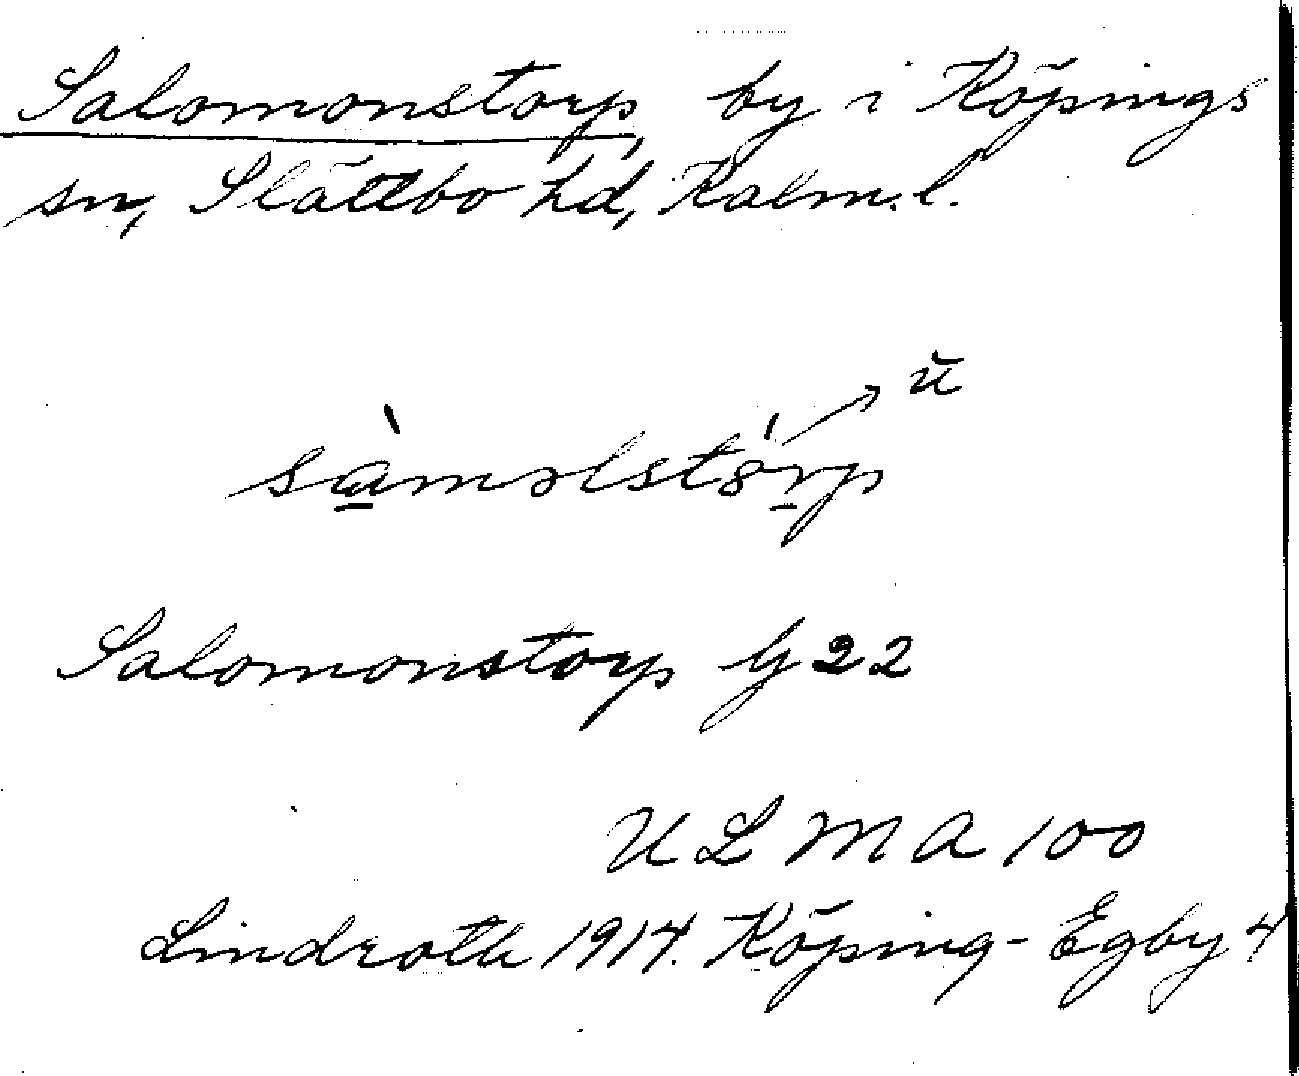 Salomonstorp, by i Köpings
sn, Slättbo hd, Kalm. l.
ŭ
sà̠məlstórp
Salomonstorp G 22
ULMA 100
Lindroth 1914. Köping-Egby 4